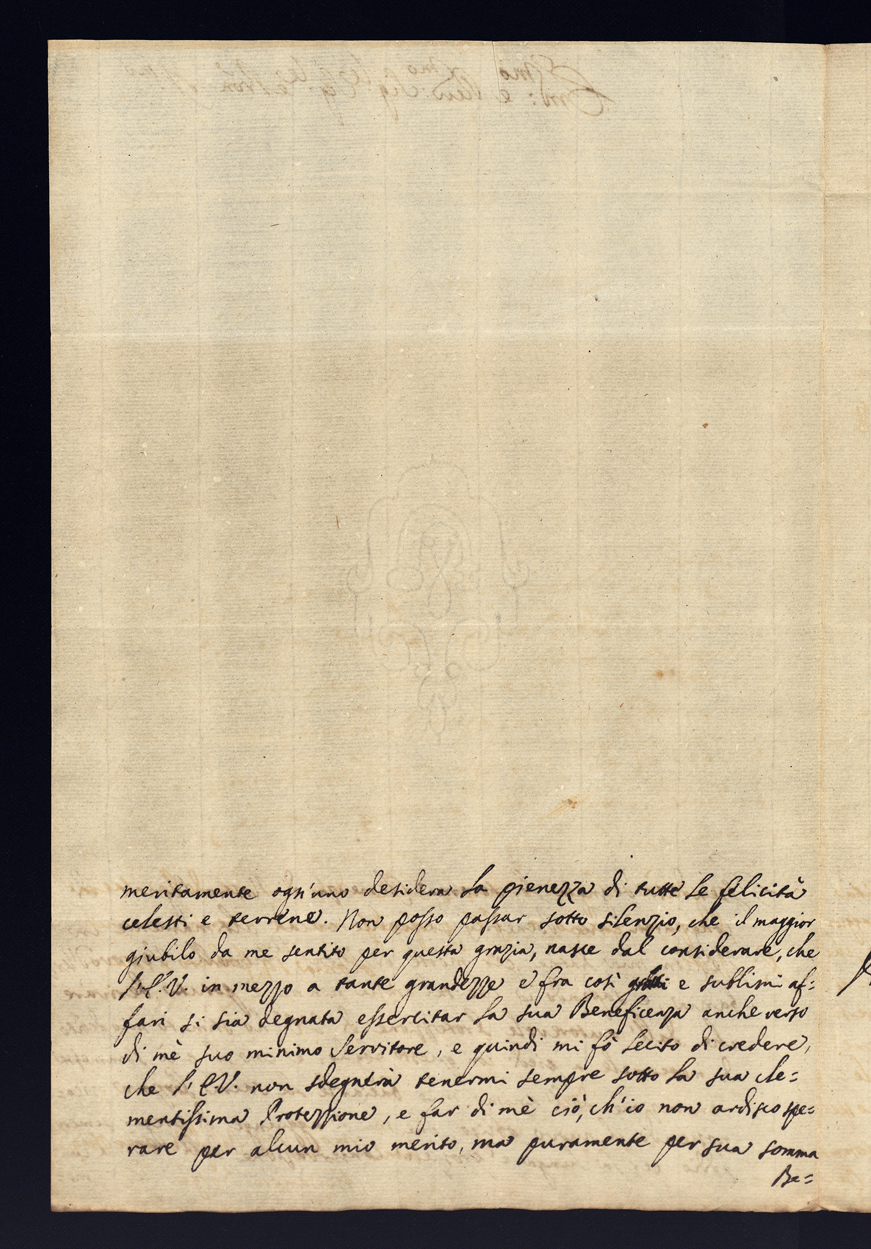 meritamente ogn'uno desidera la pienezza di tutte le felicità
celesti e terrene. Non posso passar sotto silenzio, che il maggior
giubilo da me sentito per questa grazia, nasce dal considerare, che
l'E.V. in mezzo a tante grandezze e fra così e sublimi af=
fari si sia degnata essercitar la sua Beneficenza anche verso
di mè suo minimo Servitore, e quindi mi fò lecito di credere,
che l'EV. non sdegnerà tenermi sempre sotto la sua cle=
mentissima Protezzione, e far di mè ciò, ch'io non ardisco spe=
rare per alcun mio merito, ma puramente per sua somma
Be=